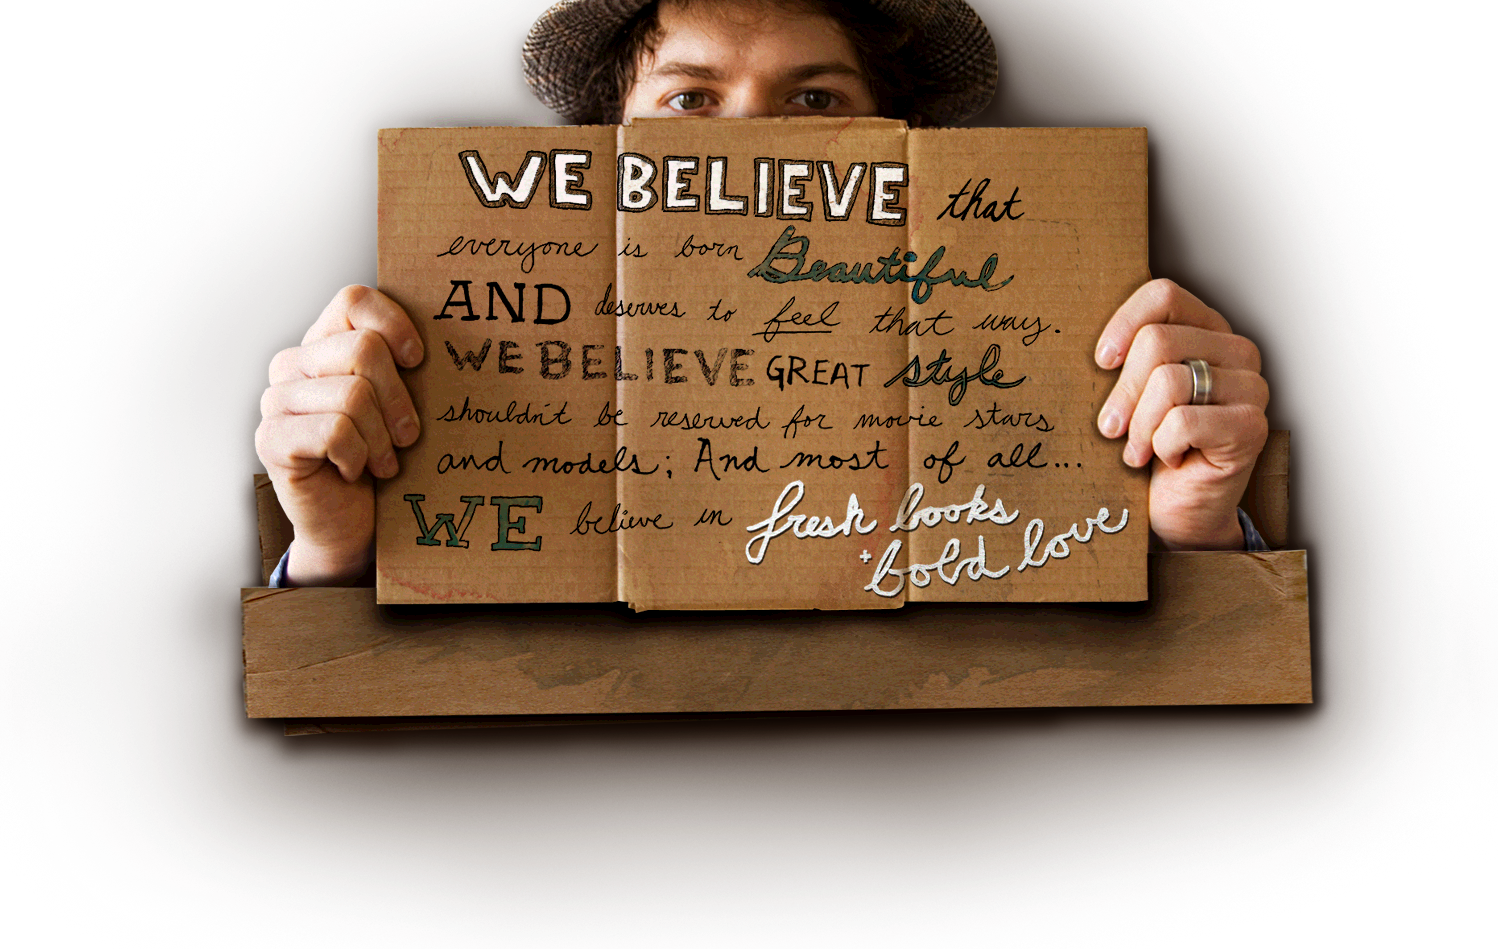 WE BELIEVE that
everyone is born Beautiful
AND deserves to feel that way.
WE BELIEVE GREAT style
shouldn't be reserved for movie stars
and models; And most of all...
WE believe in fresh books
+ bold love